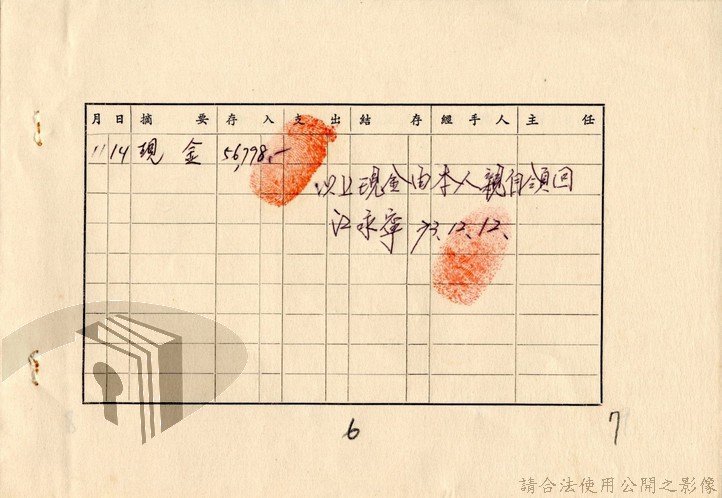 月 日 摘要 存入 支出 結存 經手人 主任
11 14 現金 56,798.—
以上現金由本人親自領回
江永寧 73.12.12.
8
6
7
請合法使用公開之影像